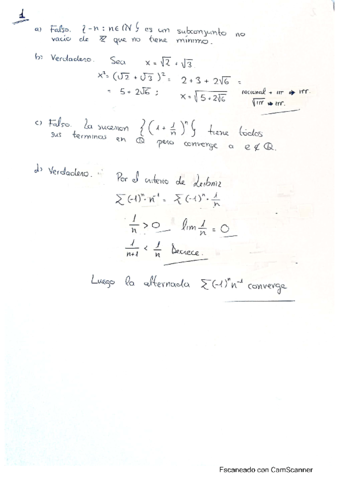 1
a) Falso. {-n : n ∈ ℕ} es un subconjunto no
vacio de ℤ que no tiene mínimo.
b) Verdadero. Sea x = √2 + √3
x² = (√2 + √3)² = 2 + 3 + 2√6 =
= 5 + 2√6 ; x = √(5 + 2√6) racional + irr ⇒ irr.
√irr ⇒ irr.
c) Falso. La sucesion {(1 + 1/n)^n} tiene todos
sus terminos en ℚ pero converge a e ∉ ℚ.
d) Verdadero. Por el criterio de Leibniz
Σ(-1)^n · n^-1 = Σ(-1)^n · 1/n
1/n > 0 lim 1/n = 0
1/(n+1) < 1/n Decrece.
Luego la alternada Σ(-1)^n n^-1 converge
Escaneado con CamScanner